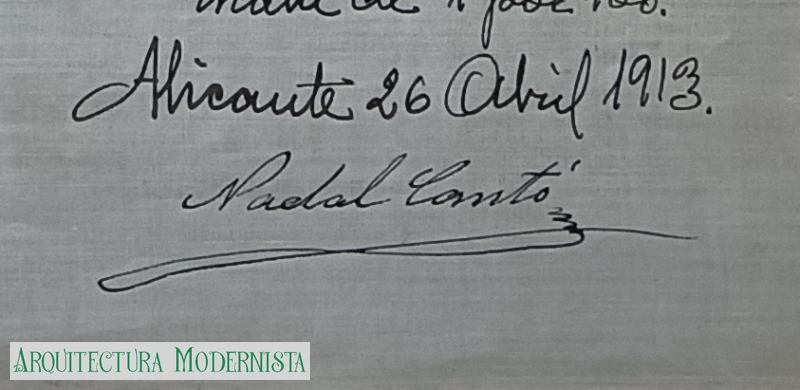 de
Alicante 26 Abril 1913.
Nadal Cantó
Arquitectura Modernista